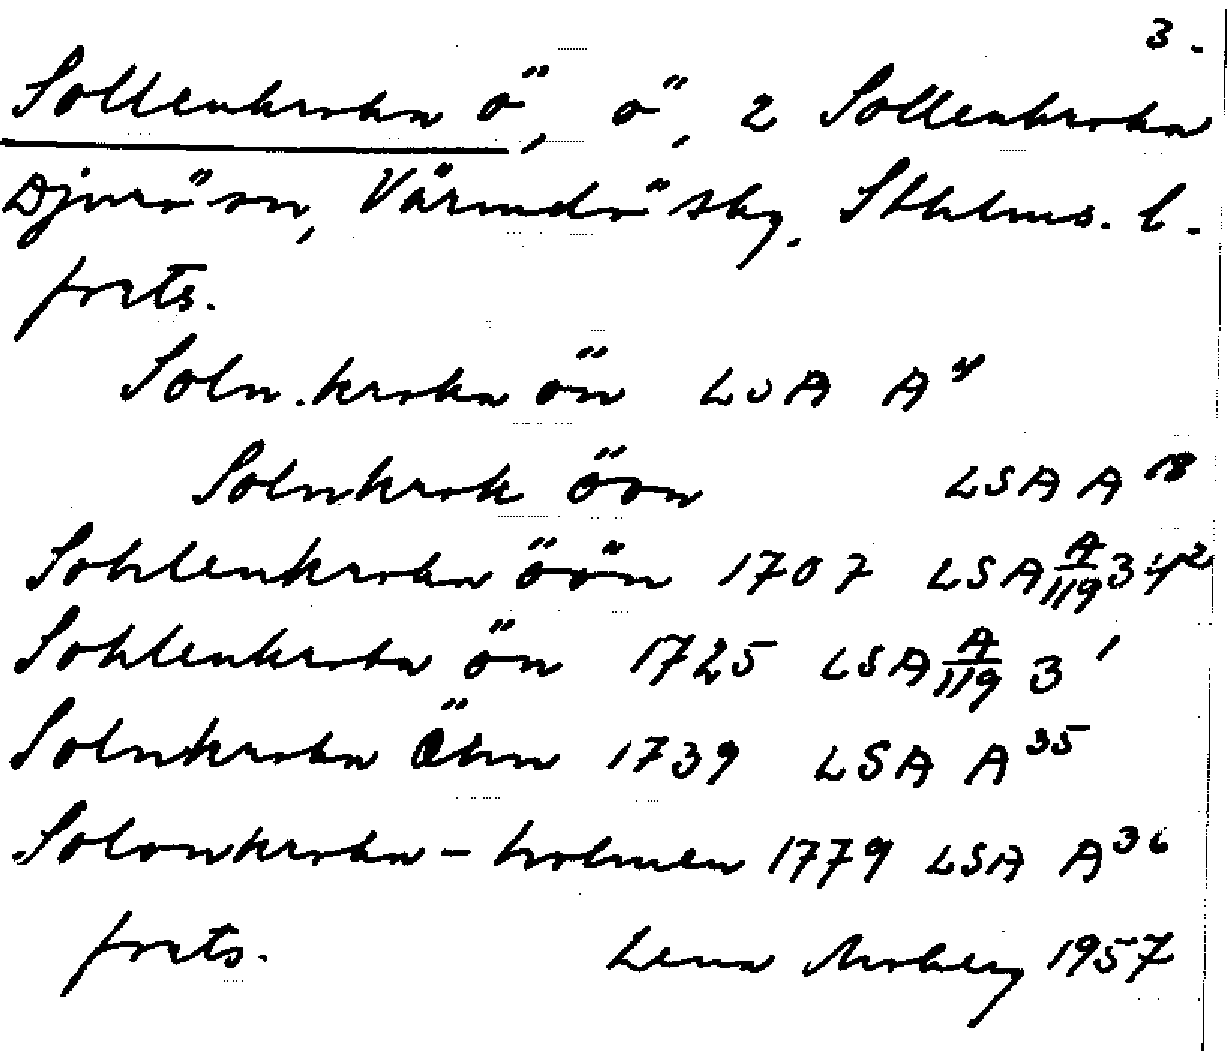 3.
Sollenkroka ö, ö, 2 Sollenkroka
Djurö sn, Värmdö skg. Sthlms. l.
forts.
Soln.kroka ön LSA A⁴
Solnkrok öon LSA A¹⁸
Sohlenkroka öön 1707 LSA A/119 34²
Sohlenkroka ön 1725 LSA A/119 3¹
Solnkroka Öhn 1739 LSA A³⁵
Solonkroka-holmen 1779 LSA A³⁶
forts. Lena Moberg 1957